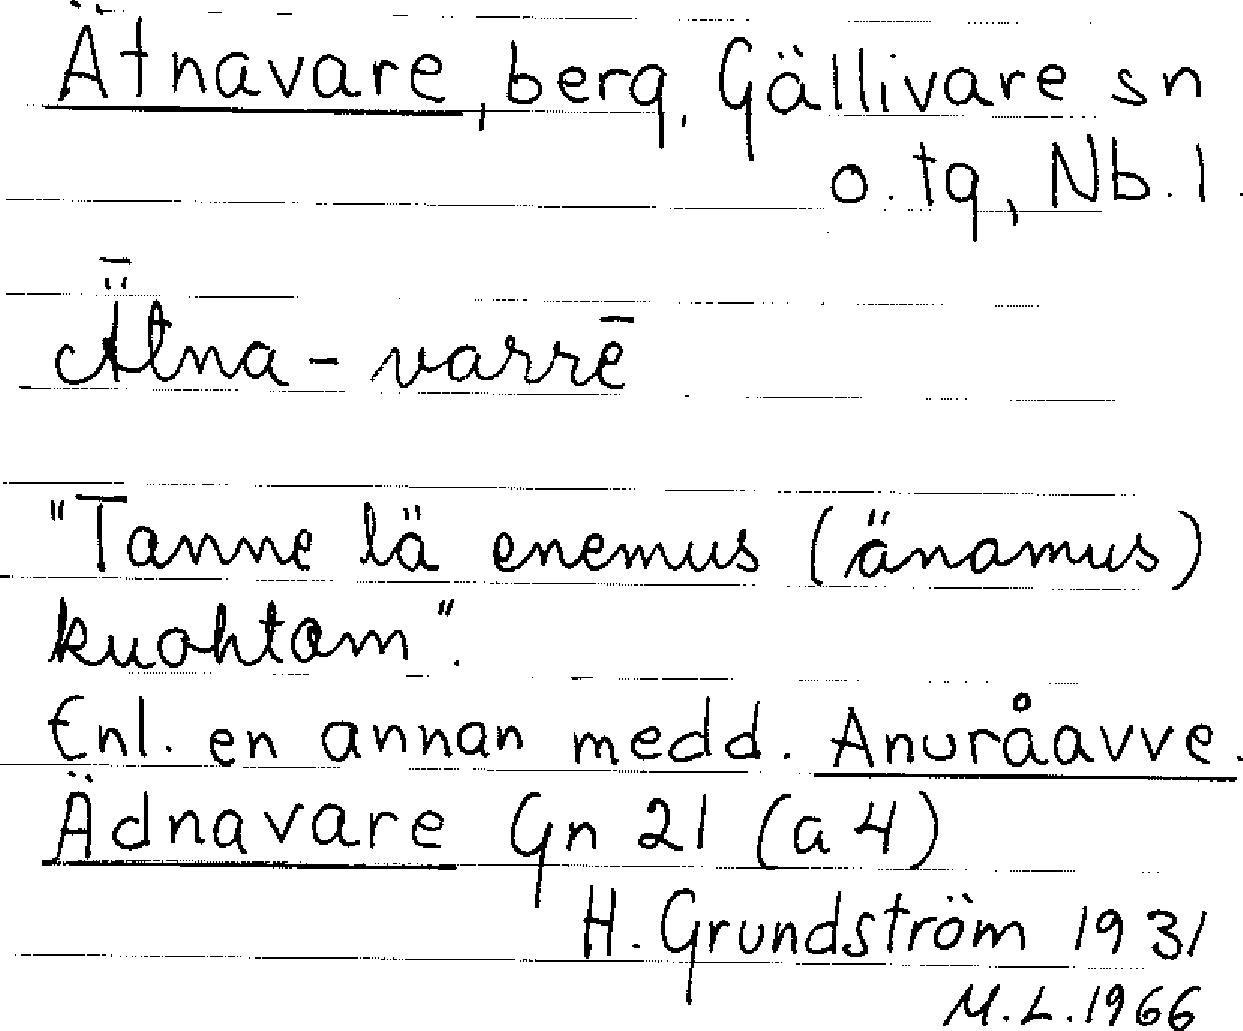 Ätnavare, berg, Gällivare sn
o. tg, Nb. l.
Ǟtna-varrē
"Tanne lä enemus (änamus)
kuohtom".
Enl. en annan medd. Anuråavve.
Ädnavare Gn 21 (a 4)
H. Grundström 1931
M.L. 1966